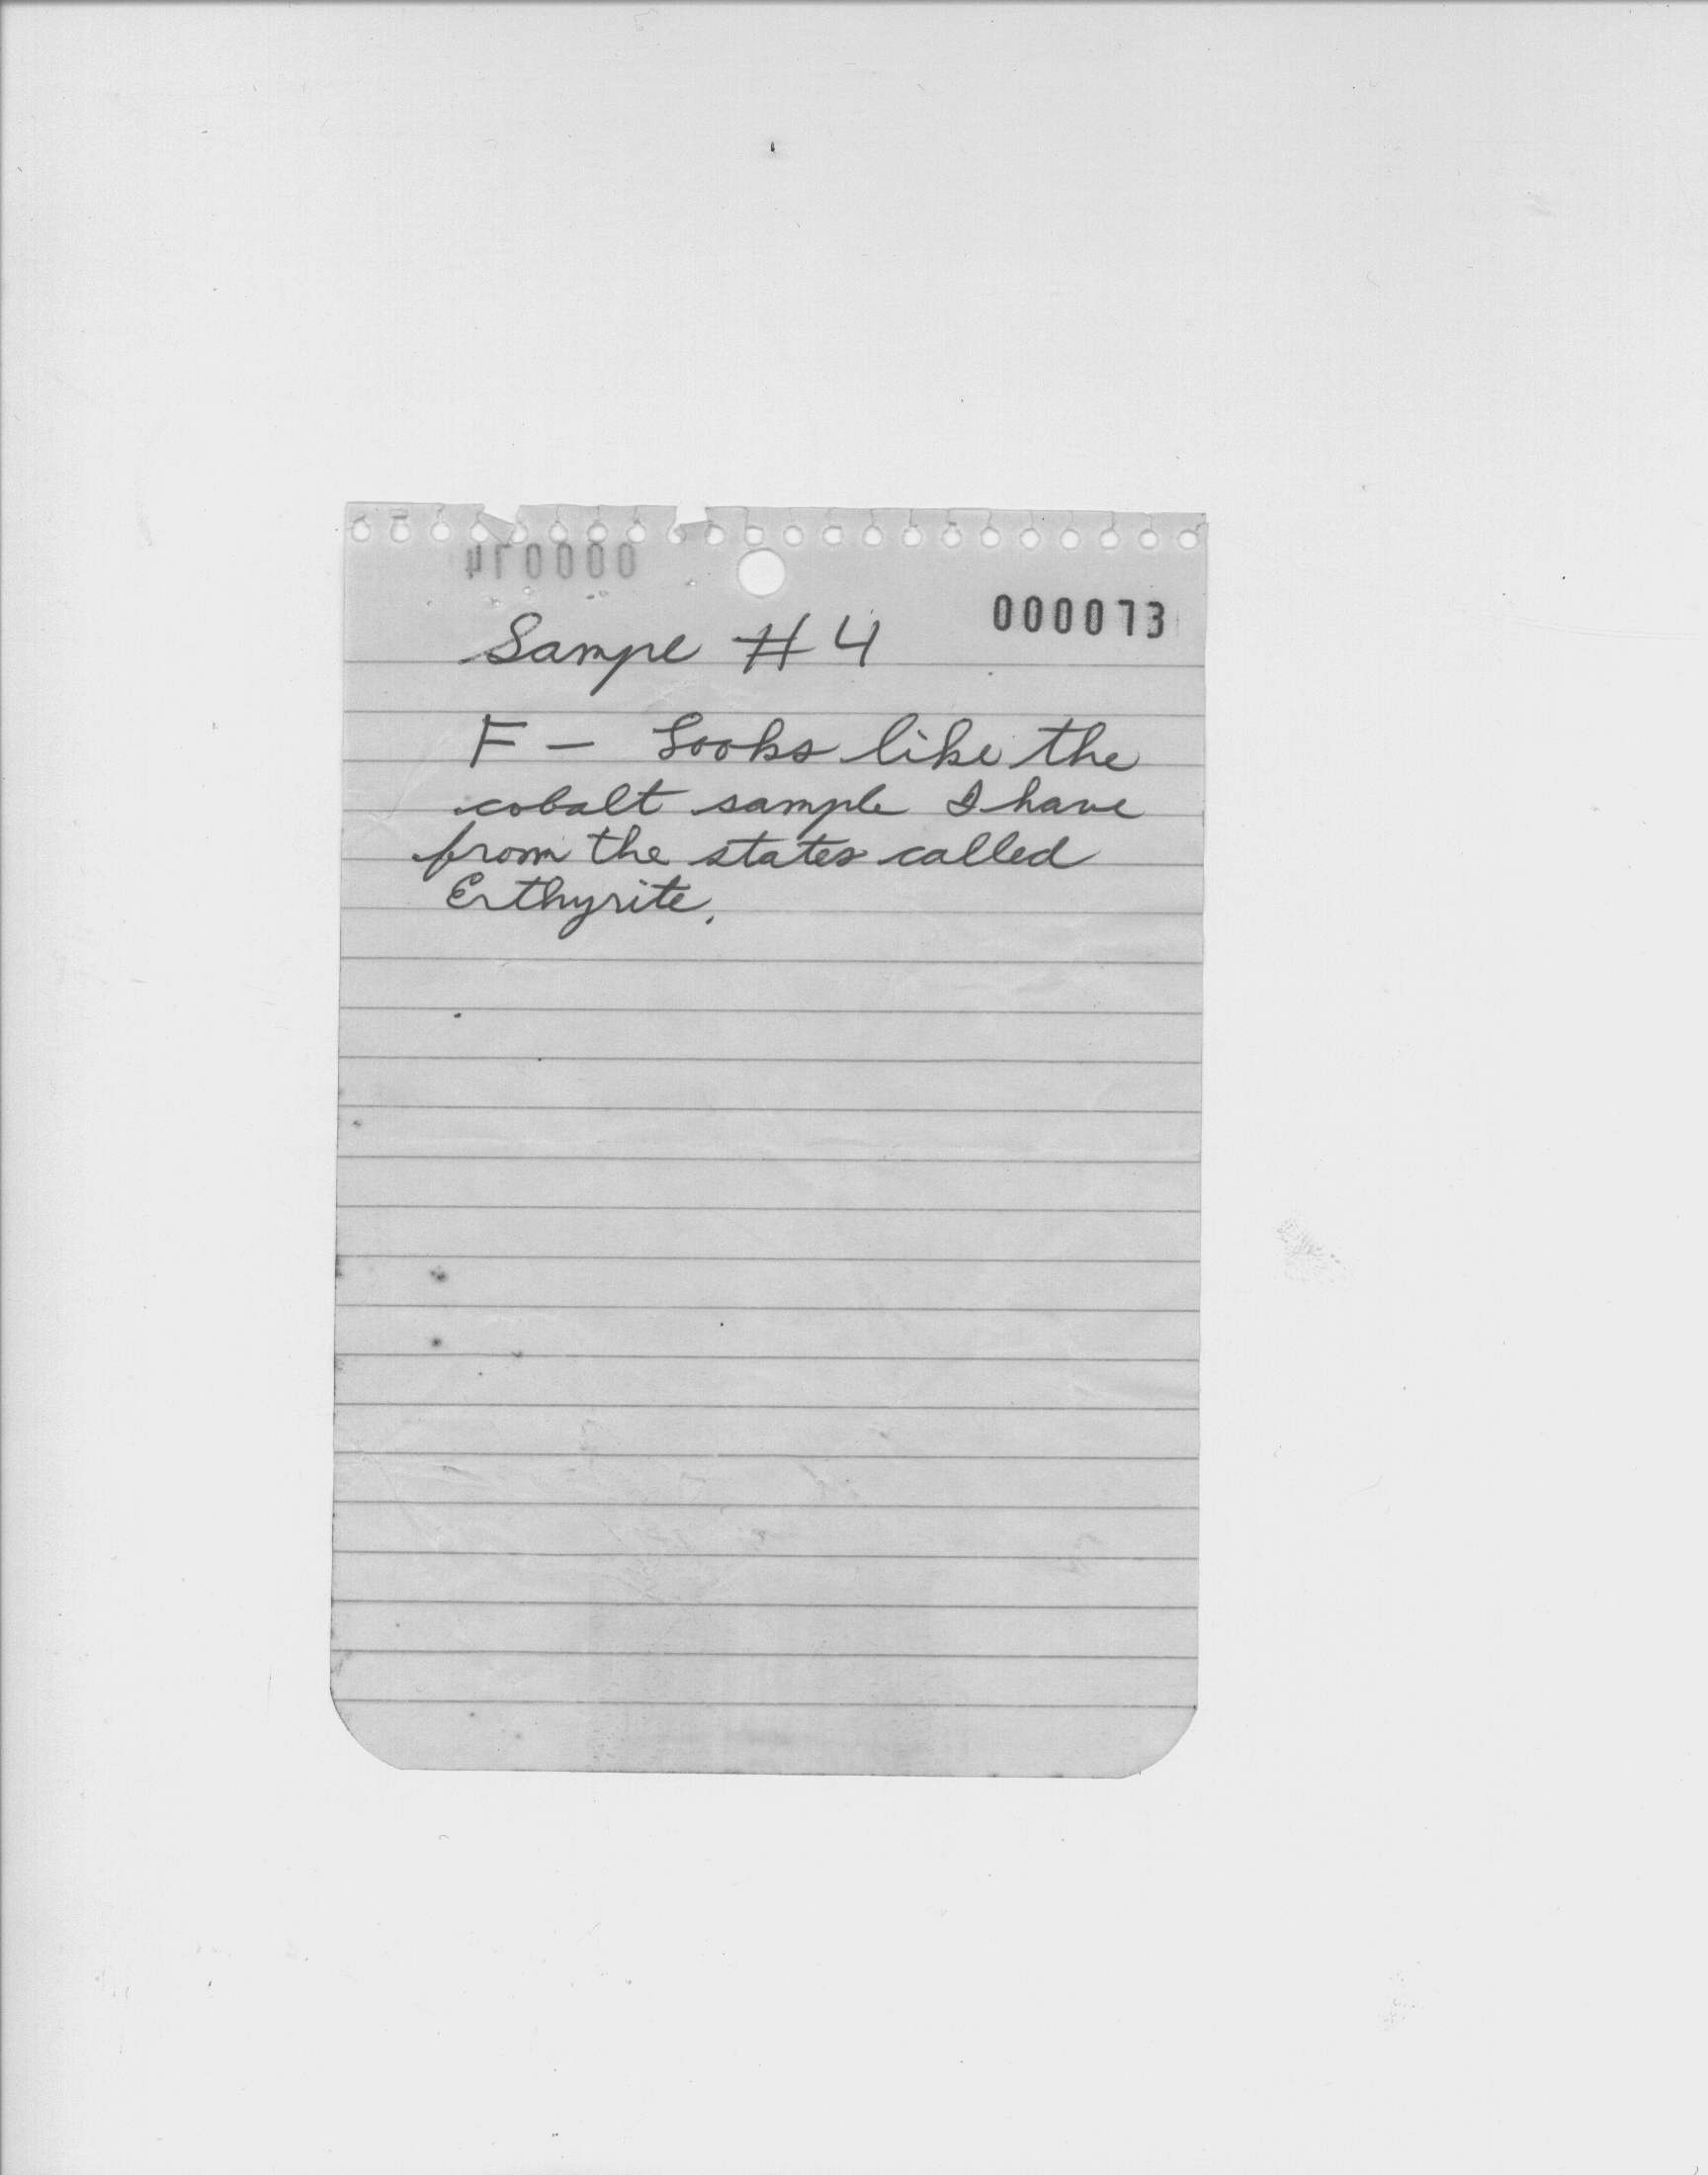 000073
Sampe # 4
F - Looks like the
cobalt sample I have
from the states called
Erthyrite.